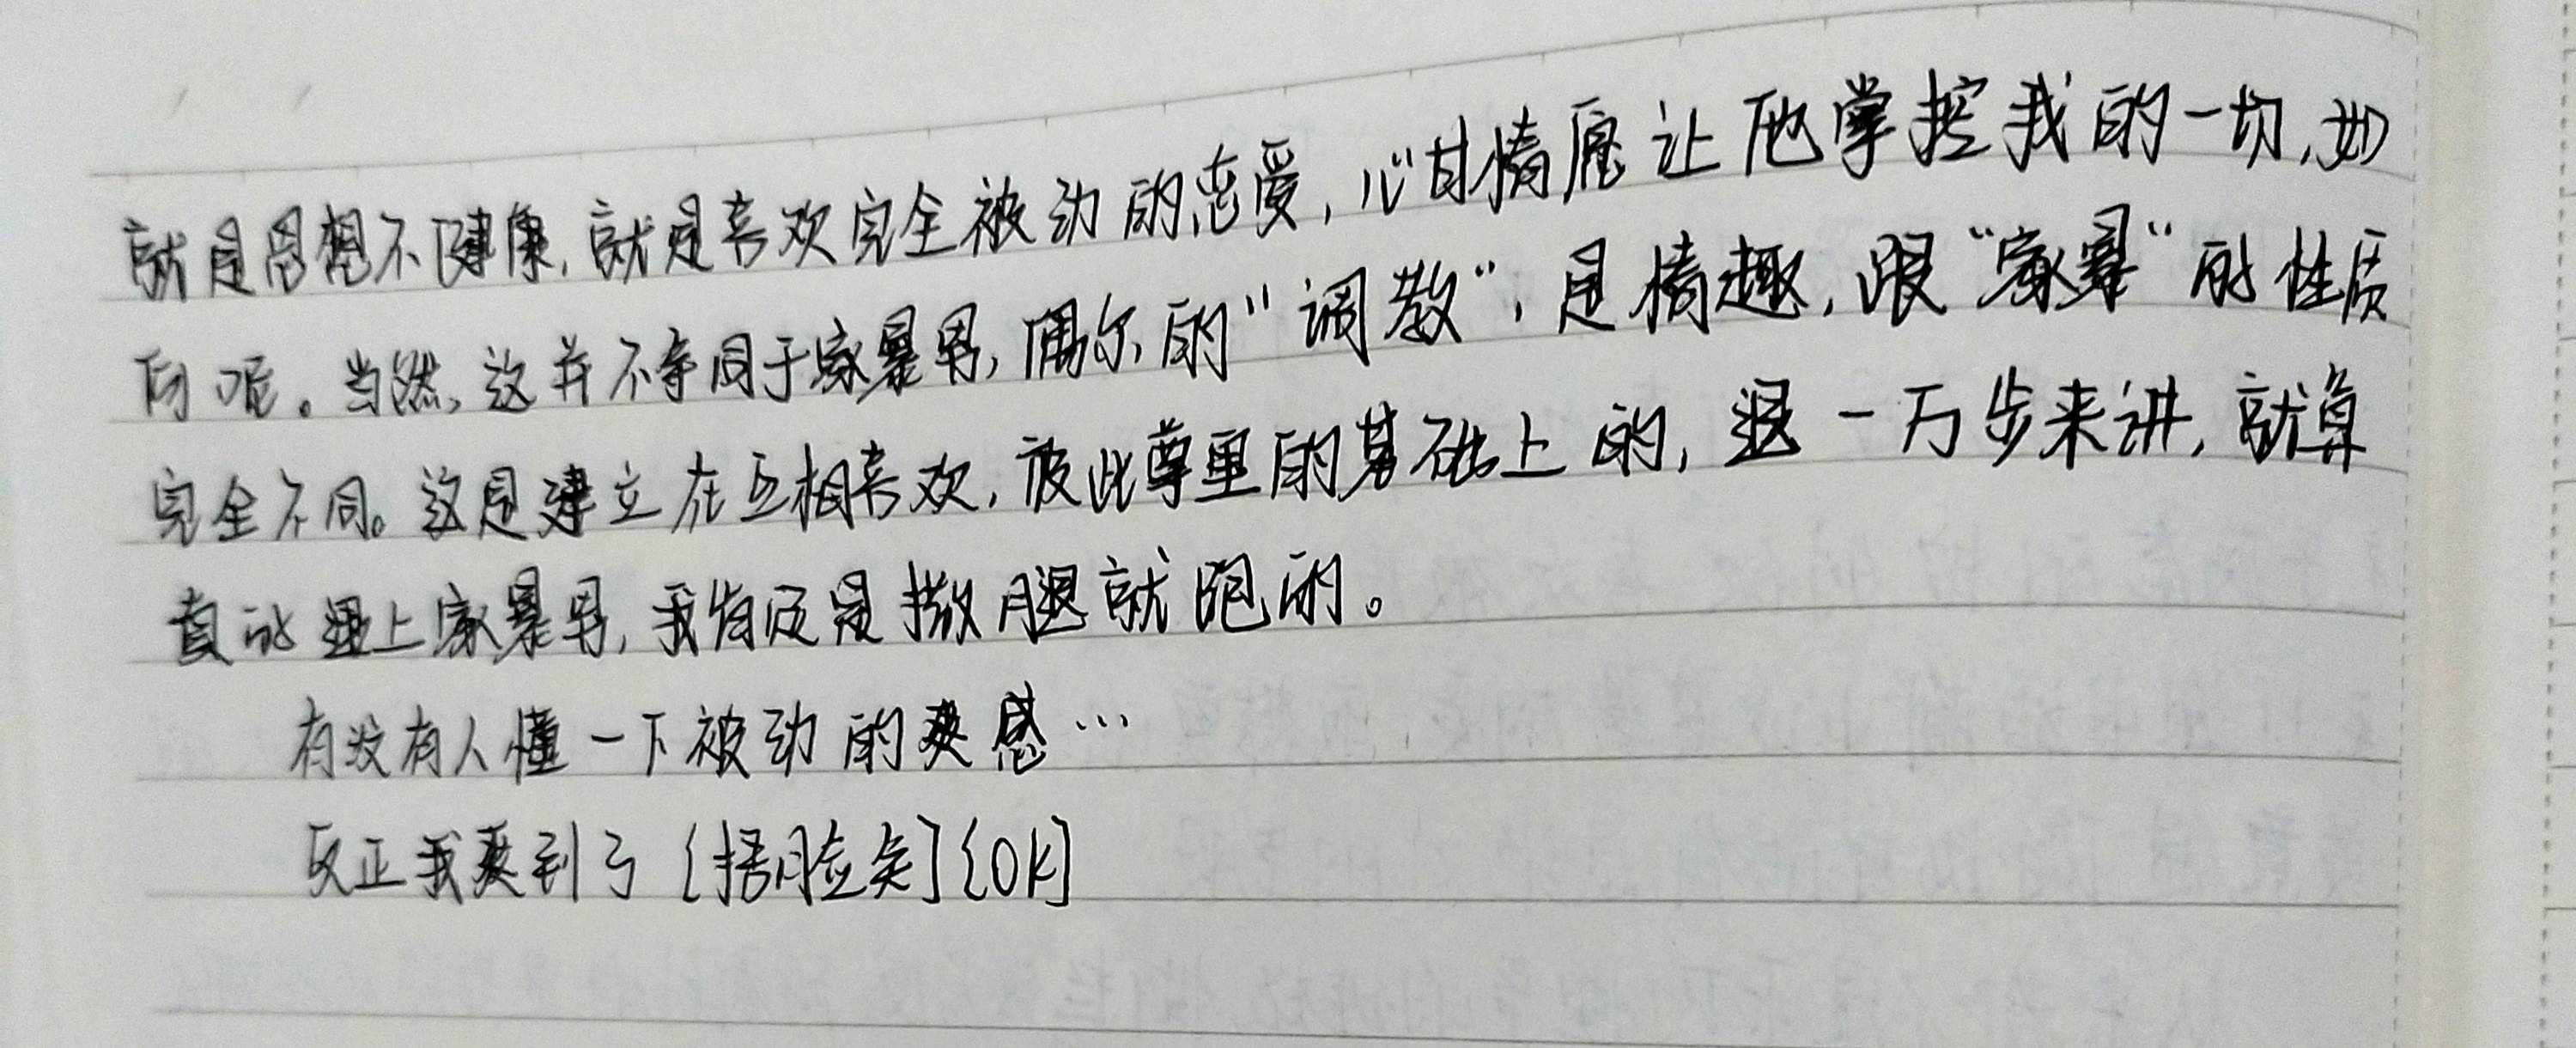 就是思想不健康,就是喜欢完全被动的恋爱,心甘情愿让他掌控我的一切,如
何呢。当然,这并不等同于家暴男,偶尔的“调教”,是情趣,跟“家暴”的性质
完全不同。这是建立在互相喜欢,彼此尊重的基础上的,退一万步来讲,就算
真的遇上家暴男,我肯定是撒腿就跑的。
有没有人懂一下被动的爽感…
反正我爽到了[捂脸笑][OK]